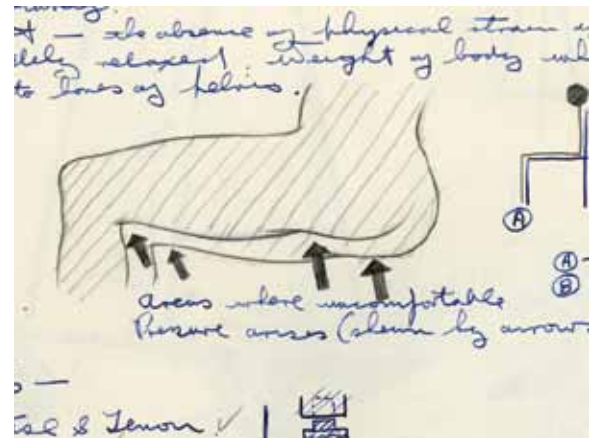 — the absence of physical strain
relaxed. Weight of body
to bones of pelvis.
A
A –
B
areas where uncomfortable
Pressure arises (shown by arrows
& Tenon ✓